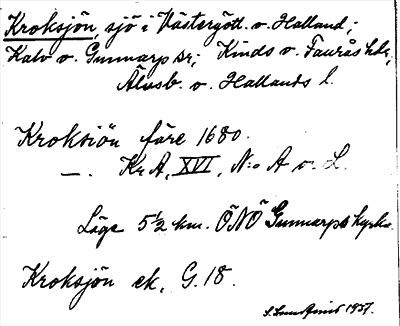 Kroksjön, sjö i Västergötl. o. Halland;
Kalv o. Gunnarp sr; Kinds o. Faurås hdr,
Älvsb. o. Hallands l.
Kroksiön före 1680.
—. Kr A, XVI, N:o A o. L.
Läge 5 1/2 km. ÖNÖ Gunnarps kyrka.
Kroksjön ek. G. 18.
1937.